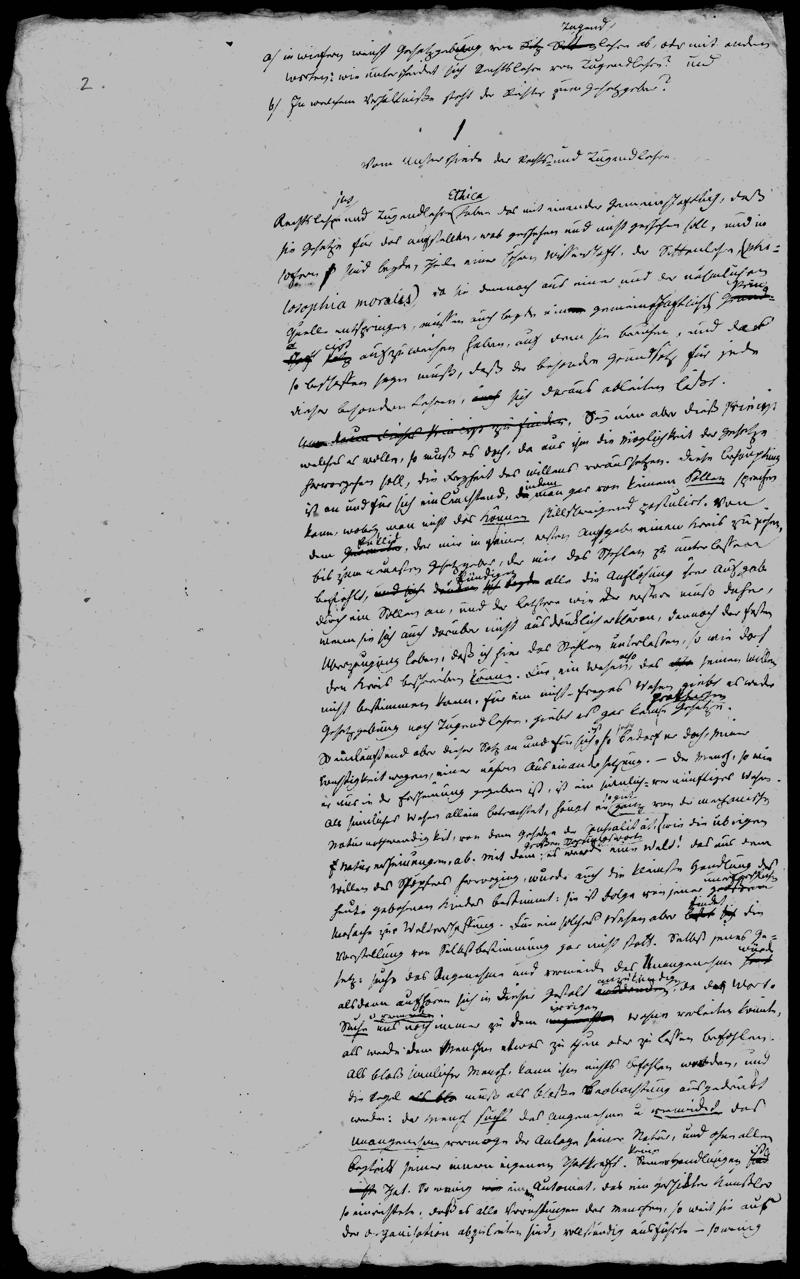 2.
a) in wiefern weicht Gesetzgebung von Tugendlehre ab, oder mit andern
Worten: wie unterscheidet sich Rechtslehre von Tugendlehre? und
b) In welchem Verhältniße steht der Richter zum Gesetzgeber?
1
Vom Unterschiede der Rechts- und Tugendlehre.
jus Ethica
Rechtslehre und Tugendlehre haben das mit einander gemeinschaftlich, daß
sie Gesetze für das aufstellen, was geschehen und nicht geschehen soll, und in
sofern sind beyde Theile einer höhern Wissenschaft, der Sittenlehre (phi-
losophia moralis) da sie demnach aus einer und der nämlichen
Quelle entspringen, müssen auch beyde einen gemeinschaftlichen
aufzuweisen haben, auf dem sie beruhen, und der
so beschaffen seyn muß, daß der besondere Grundsatz für jede
dieser besondern Lehren, sich daraus ableiten läßt.
Sey nun aber dieß Princip
welches es wolle, so muß es doch, da aus ihm die Möglichkeit der Gesetze
hervorgehen soll, die Freyheit des Willens voraussetzen. Diese Behauptung
ist an und für sich einleuchtend, indem man gar von keinem Sollen sprechen
kann, wobey man nicht das Können stillschweigend postulirt. Von
dem Euklid, der mir in seiner ersten Aufgabe einen Kreis zu ziehen,
bis zum neuesten Gesetzgeber, der mir das Stehlen zu unterlassen
befiehlt, kündigen alle die Auflösung ihrer Aufgabe
durch ein Sollen an, und der letztere wie der erstere muß daher,
wenn sie sich auch darüber nicht ausdrücklich erklären, dennoch der festen
Ueberzeugung leben, daß ich hier das Stehlen unterlassen, so wie dort
den Kreis beschreiben könne. Für ein Wesen, das seinen Willen
nicht bestimmen kann, für ein nicht-freyes Wesen giebt es weder
Gesetzgebung noch Tugendlehre, giebt es gar keine praktischen Gesetze.
So einleuchtend aber dieser Satz an und für sich ist, so bedarf er doch, seiner
Wichtigkeit wegen, einer nähern Auseinandersetzung. — Der Mensch, so wie
er uns in der Erfahrung gegeben ist, ist ein sinnlich-vernünftiges Wesen.
Als sinnliches Wesen allein betrachtet, hängt er ganz von der mechanischen
Naturnothwendigkeit, von dem Gesetze der Causalität, (wie die übrigen
Naturerscheinungen, ab. Mit dem: es werde eine Welt! das aus dem
Willen des Schöpfers hervorging, wurde auch die kleinste Handlung des
heute gebohrnen Kindes bestimmt: sie ist Folge von jener
Ursache zur Weltschöpfung. Für ein solches Wesen aber findet die
Vorstellung von Selbstbestimmung gar nicht statt. Selbst jenes Ge-
setz: suche das Angenehme und vermeide das Unangenehme würde
alsdann aufhören sich in dieser Gestalt anzukündigen, da das Wort
Suche uns noch immer zu dem irrigen Wahne verleiten könnte,
als werde dem Menschen etwas zu thun oder zu lassen befohlen.
Als bloß sinnlicher Mensch, kann ihm nichts befohlen werden, und
die Regel muß als bloße Beobachtung ausgedrückt
werden: der Mensch sucht das Angenehme u vermeidet das
Unangenehme vermöge der Anlage seiner Natur, und ohne allen
Begriff seiner innern eigenen Thatkraft. Keine Handlungen
That. So wenig ein Automat, das ein geschickter Künstler
so einrichtete, daß es alle Verrichtungen des Menschen, so weit sie aus
der Organisation abzuleiten sind, vollständig ausführte — so wenig